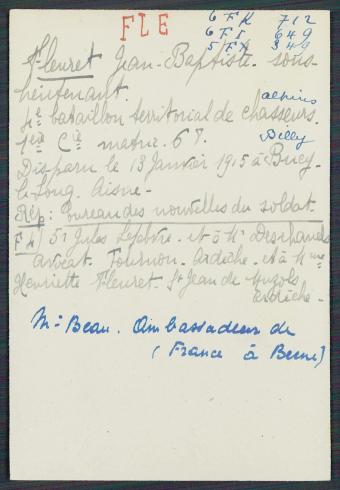 FLE
6 FK 712
6 FI 649
5 FX 349
Fleuret Jean-Baptiste. sous-
lieutenant.
4e bataillon territorial de chasseurs. alpins
1ère Cie matric. 67. Billy
Disparu le 13 Janvier 1915 à Bucy-
le-Long. Aisne-
Rép: Bureau des nouvelles du soldat.
51 Jules Lefebvre. et à Mr Deschanels
avocat. Tournon. Ardèche. et à Mme
Henriette Fleuret. St Jean de Muzols
Ardèche-
Mr Beau. Ambassadeur de
(France à Berne)